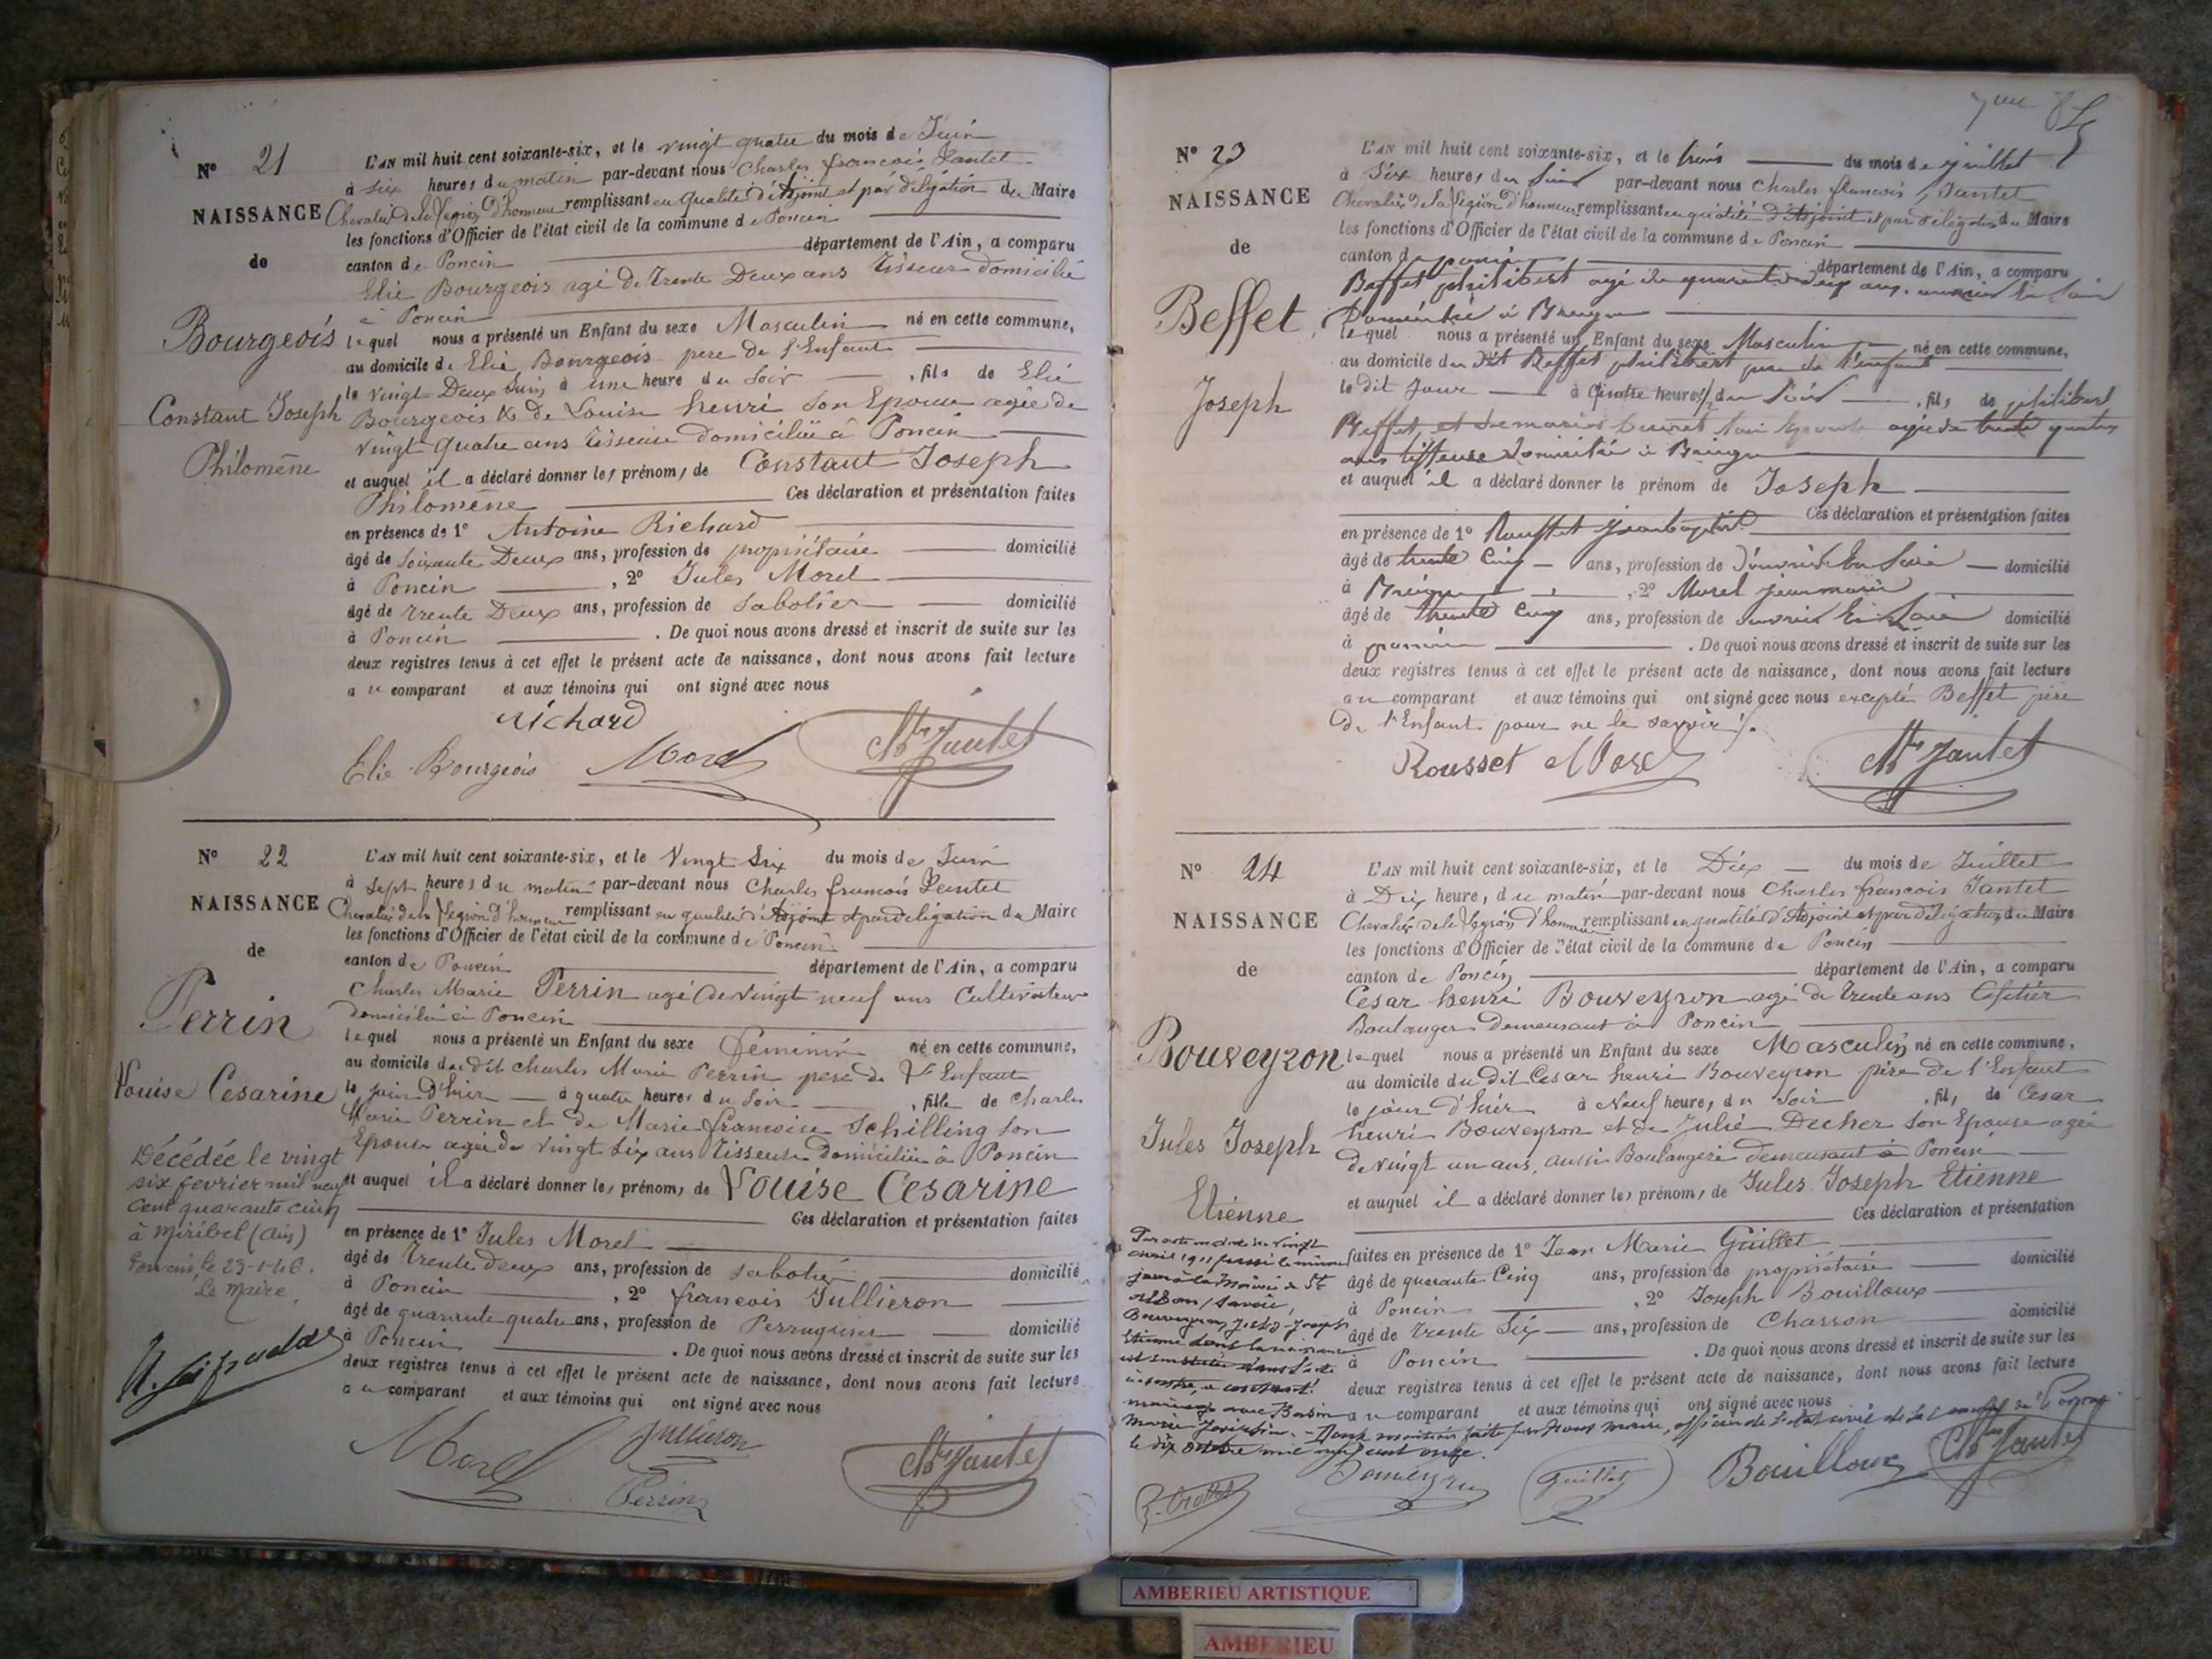 N° 21
NAISSANCE
de
Bourgeois
Constant Joseph
Philomène
L'AN mil huit cent soixante-six, et le vingt quatre du mois de Juin
à six heures du matin par-devant nous Charles françois Jantet
Chevalier de la Légion D'honneur remplissant en qualité d'Adjoint et par délégation du Maire
les fonctions d'Officier de l'état civil de la commune de Poncin
canton de Poncin département de l'Ain, a comparu
Elie Bourgeois agé de trente Deux ans tisseur domicilié
à Poncin
lequel nous a présenté un Enfant du sexe Masculin né en cette commune,
au domicile de Elie Bourgeois pere de l'Enfant
le vingt Deux Juin à une heure du Soir , fils de Elie
Bourgeois & de Louise henri son Epouse agée de
vingt quatre ans tisseuse domiciliée à Poncin
et auquel il a déclaré donner les prénoms de Constant Joseph
Philomène Ces déclaration et présentation faites
en présence de 1° Antoine Richard
âgé de soixante Deux ans, profession de propriétaire domicilié
à Poncin , 2° Jules Morel
âgé de trente Deux ans, profession de Sabotier domicilié
à Poncin . De quoi nous avons dressé et inscrit de suite sur les
deux registres tenus à cet effet le présent acte de naissance, dont nous avons fait lecture
au comparant et aux témoins qui ont signé avec nous
richard
Elie Bourgeois Morel Ch Jantet
N° 22
NAISSANCE
de
Perrin
Louise Cesarine
Décédée le vingt
six fevrier mil neuf
cent quarante cinq
à Miribel (Ain)
Poncin le 23-1-46.
Le Maire,
L'AN mil huit cent soixante-six, et le Vingt Six du mois de Juin
à sept heures du matin par-devant nous Charles francois Jantet
Chevalier de la Légion d'honneur remplissant en qualité d'Adjoint et par délégation du Maire
les fonctions d'Officier de l'état civil de la commune de Poncin
canton de Poncin département de l'Ain, a comparu
Charles Marie Perrin agé de vingt neuf ans Cultivateur
domicilié à Poncin
lequel nous a présenté un Enfant du sexe féminin né en cette commune,
au domicile du dit Charles Marie Perrin pere de l'Enfant
le jour D'hier à quatre heures du Soir , fille de Charles
Marie Perrin et de Marie francoise Schilling son
Epouse agée de vingt six ans tisseuse domiciliée à Poncin
et auquel il a déclaré donner les prénoms de Louise Cesarine
Ces déclaration et présentation faites
en présence de 1° Jules Morel
âgé de trente deux ans, profession de sabotier domicilié
à Poncin , 2° francois Jullieron
âgé de quarante quatre ans, profession de Perruquier domicilié
à Poncin . De quoi nous avons dressé et inscrit de suite sur les
deux registres tenus à cet effet le présent acte de naissance, dont nous avons fait lecture
au comparant et aux témoins qui ont signé avec nous
Morel Jullieron Ch Jantet
Perrin
N° 23
NAISSANCE
de
Beffet
Joseph
L'AN mil huit cent soixante-six, et le trois du mois de juillet
à Six heures du Soir par-devant nous Charles francois Jantet
Chevalier de la Légion d'honneur remplissant en qualité d'Adjoint et par délégation du Maire
les fonctions d'Officier de l'état civil de la commune de Poncin
canton de poncin département de l'Ain, a comparu
Beffet philibert agé de quarante deux ans ouvrier en soie
Domicilié à
lequel nous a présenté un Enfant du sexe Masculin né en cette commune,
au domicile du dit Beffet philibert pere de l'enfant
le dit Jour à quatre heures 1/2 du Soir , fils de philibert
Beffet, et de marie son Epouse agée de trente quatre
ans tisseuse Domiciliée à
et auquel il a déclaré donner le prénom de Joseph
Ces déclaration et présentation faites
en présence de 1° Rousset jean baptiste
âgé de trente cinq ans, profession de d'ouvrier en soie domicilié
à , 2° Morel jean marie
âgé de trente cinq ans, profession de ouvrier en soie domicilié
à poncin . De quoi nous avons dressé et inscrit de suite sur les
deux registres tenus à cet effet le présent acte de naissance, dont nous avons fait lecture
au comparant et aux témoins qui ont signé avec nous excepté Beffet père
de l'Enfant pour ne le savoir /.
Rousset Morel Ch Jantet
N° 24
NAISSANCE
de
Bouveyron
Jules Joseph
Etienne
L'AN mil huit cent soixante-six, et le Dix du mois de Juillet
à Dix heures du matin par-devant nous Charles francois Jantet
Chevalier de la Légion d'honneur remplissant en qualité d'Adjoint et par délégation du Maire
les fonctions d'Officier de l'état civil de la commune de Poncin
canton de Poncin département de l'Ain, a comparu
Cesar henri Bouveyron agé de trente ans Cafetier
Boulanger demeurant à Poncin
lequel nous a présenté un Enfant du sexe Masculin né en cette commune,
au domicile du dit Cesar henri Bouveyron père de l'Enfant
le jour d'hier à Neuf heures du Soir , fils de Cesar
henri Bouveyron et de Julie Decher son Epouse agée
de vingt un ans, aussi Boulangere demeurant à Poncin
et auquel il a déclaré donner les prénoms de Jules Joseph Etienne
Ces déclaration et présentation
faites en présence de 1° Jean Marie Guillet
âgé de quarante Cinq ans, profession de propriétaire domicilié
à Poncin , 2° Joseph Bouilloux
âgé de trente Six ans, profession de Charron domicilié
à Poncin . De quoi nous avons dressé et inscrit de suite sur les
deux registres tenus à cet effet le présent acte de naissance, dont nous avons fait lecture
au comparant et aux témoins qui ont signé avec nous
Par acte en date du vingt
avril 1911 passé le même
jour à la Mairie de St
Alban, Savoie,
Bouveyron Jules-Joseph
Etienne dont la naissance
mariage avec
Marie Joséphine. - Dont mention faite par nous maire, officier de l'état civil de la commune de Poncin
le dix octobre mil neuf cent onze.
Bouveyron Guillet Bouilloux Ch Jantet
AMBERIEU ARTISTIQUE
AMBERIEU